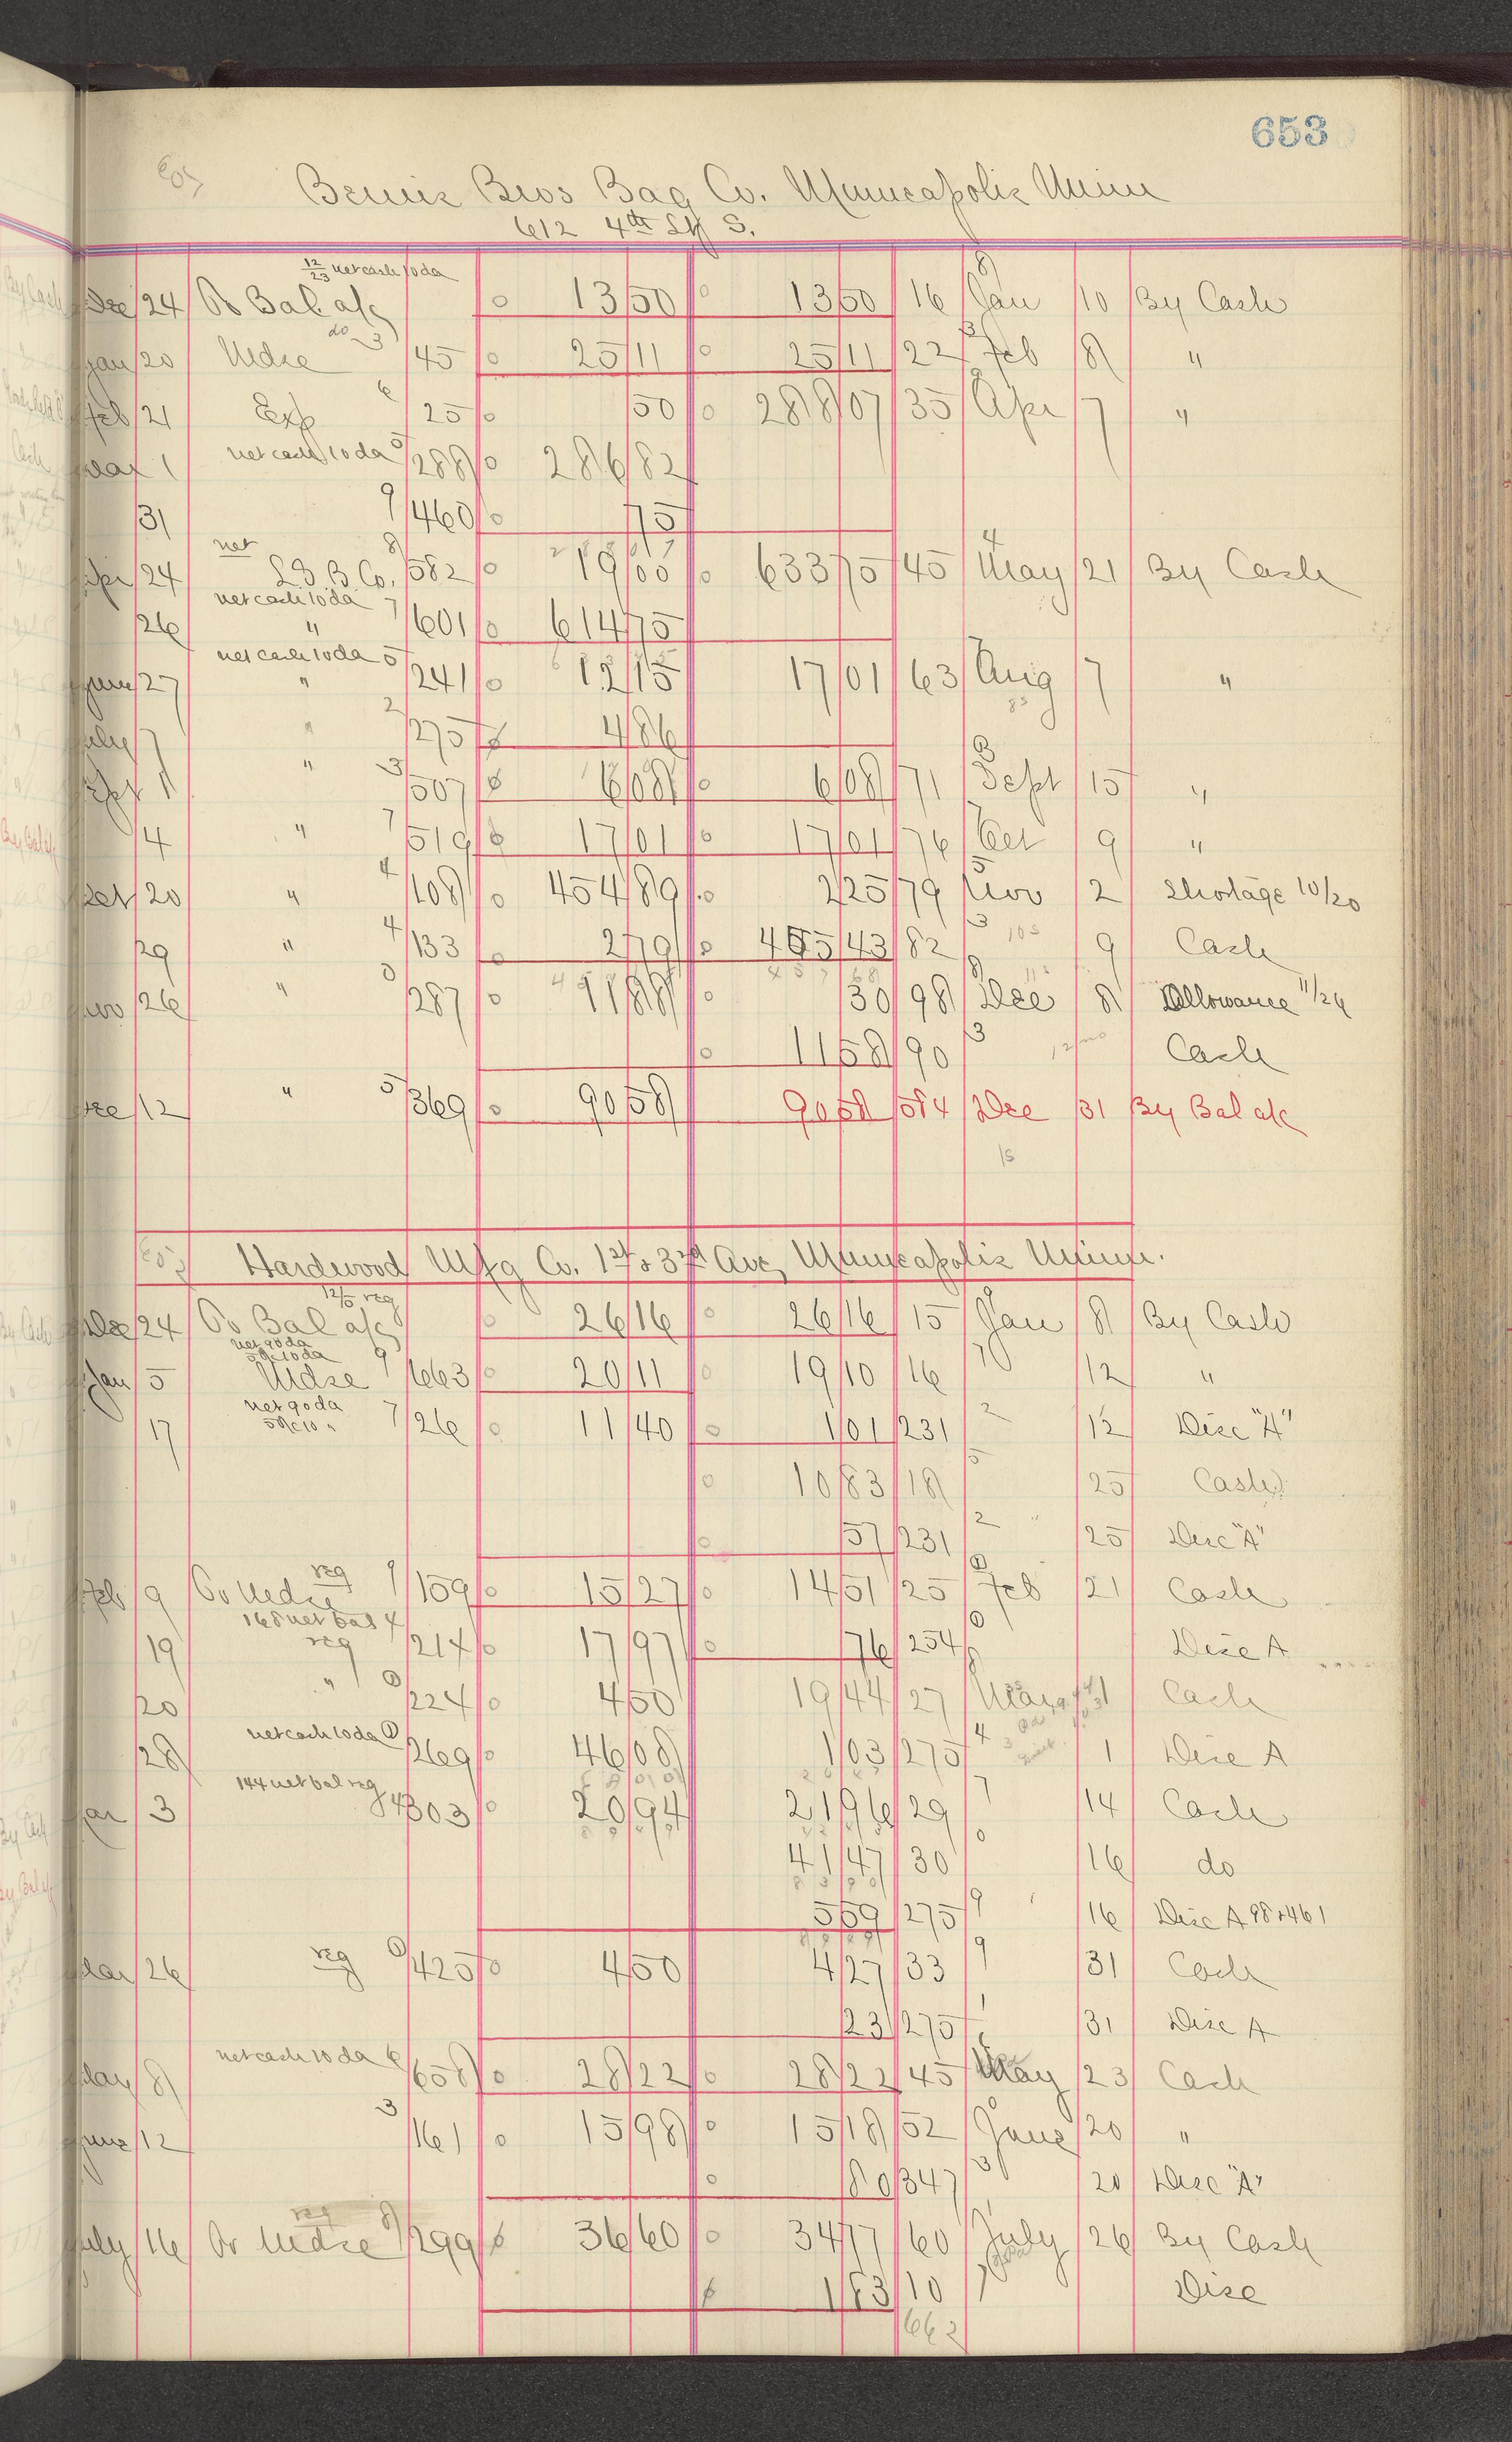 653
Bemis Bros Bag Co. Minneapolis Minn
612 4th St S.
12/23 net cash 10 da
Dec 24 To Bal a/c 13 50 13 50 16 Jan 10 By Cash
do
Jan 20 Mdse 3/45 25 11 25 11 22 Feb 8 "
Feb 21 Exp 6/25 50 288 07 35 Apr 7 "
Mar 1 net cash 10 da 5/288 286 82
31 9/460 75
net
Apr 24 L B B Co. 8/582 19 00 633 75 45 May 21 By Cash
net cash 10 da
26 " 7/601 614 75
net cash 10 da
June 27 " 5/241 12 15 17 01 63 Aug 7 "
July 7 " 2/275 4 86
Sept 1 " 3/507 6 08 6 08 71 Sept 15 "
4 " 7/519 17 01 17 01 76 Oct 9 "
Oct 20 " 4/108 454 89 2 25 79 Nov 2 Shortage 10/20
29 " 4/133 2 79 455 43 82 9 Cash
Nov 26 " 3/287 11 88 30 98 Dec 8 Allowance 11/26
11 58 90 Cash
Dec 12 " 5/369 90 58 90 58 584 Dec 31 By Bal a/c
Hardwood Mfg Co. 1st & 3rd Ave, Minneapolis Minn.
12/5 reg
Dec 24 To Bal a/c 26 16 26 16 15 Jan 8 By Cash
net 90 da
5% 10 da
Jan 5 Mdse 9/663 20 11 19 10 16 12 "
net 90 da
17 5% 10 " 7/26 11 40 1 01 231 12 Disc "A"
10 83 18 25 Cash
57 231 25 Disc "A"
reg
Feb 9 To Mdse 9/159 15 27 14 51 25 Feb 21 Cash
168 net bal
19 reg 4/214 17 97 76 254 Disc A
20 " 224 4 50 19 44 27 Mar 1 Cash
28 net cash 10 da 269 46 08 1 03 275 1 Disc A
144 net bal reg
Mar 3 303 20 94 21 96 29 14 Cash
41 47 30 16 do
5 59 275 16 Disc A 98 + 461
Mar 26 reg 425 4 50 4 27 33 31 Cash
23 275 31 Disc A
May 8 net cash 10 da 6/658 28 22 28 22 45 May 23 Cash
June 12 3/161 15 98 15 18 52 June 20 "
80 347 20 Disc "A"
reg
July 16 To Mdse 8/299 36 60 34 77 60 July 26 By Cash
1 83 10 Disc
662